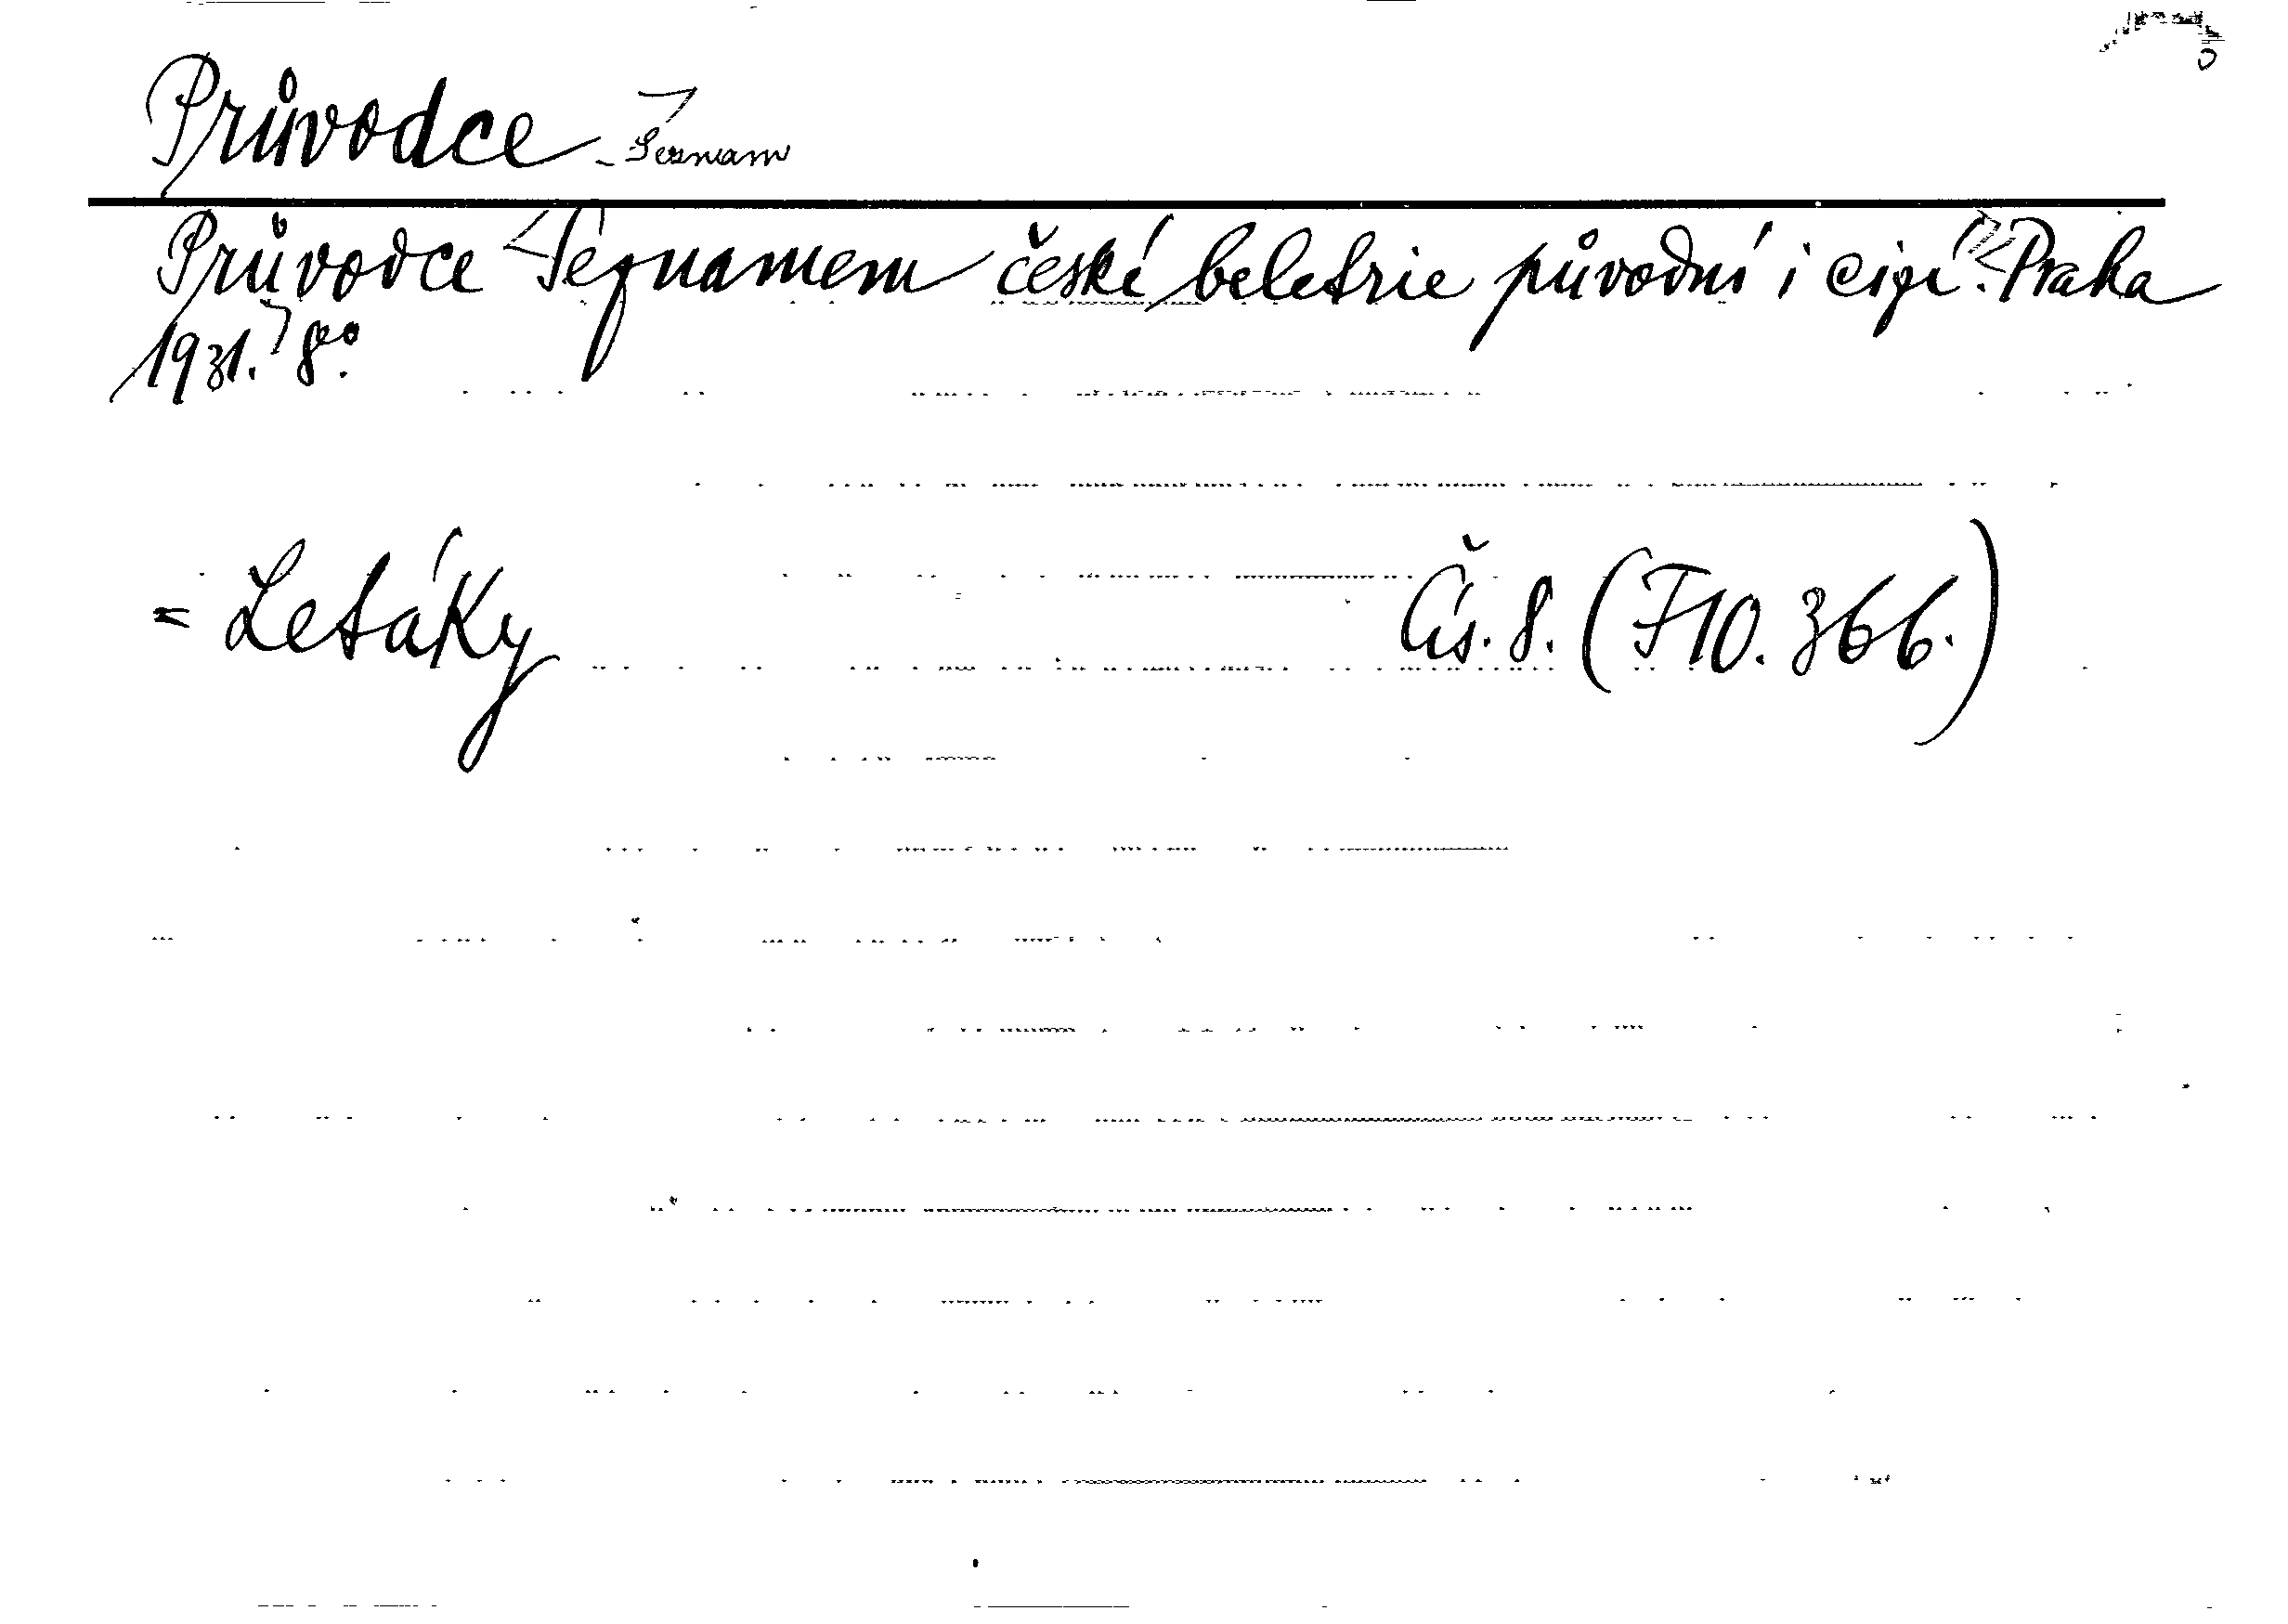 Průvodce - Seznam
Průvodce Seznamem české beletrie původní i cizí. Praha
1931. 8°.
= Letáky Čís. 8. (F10. 366.)